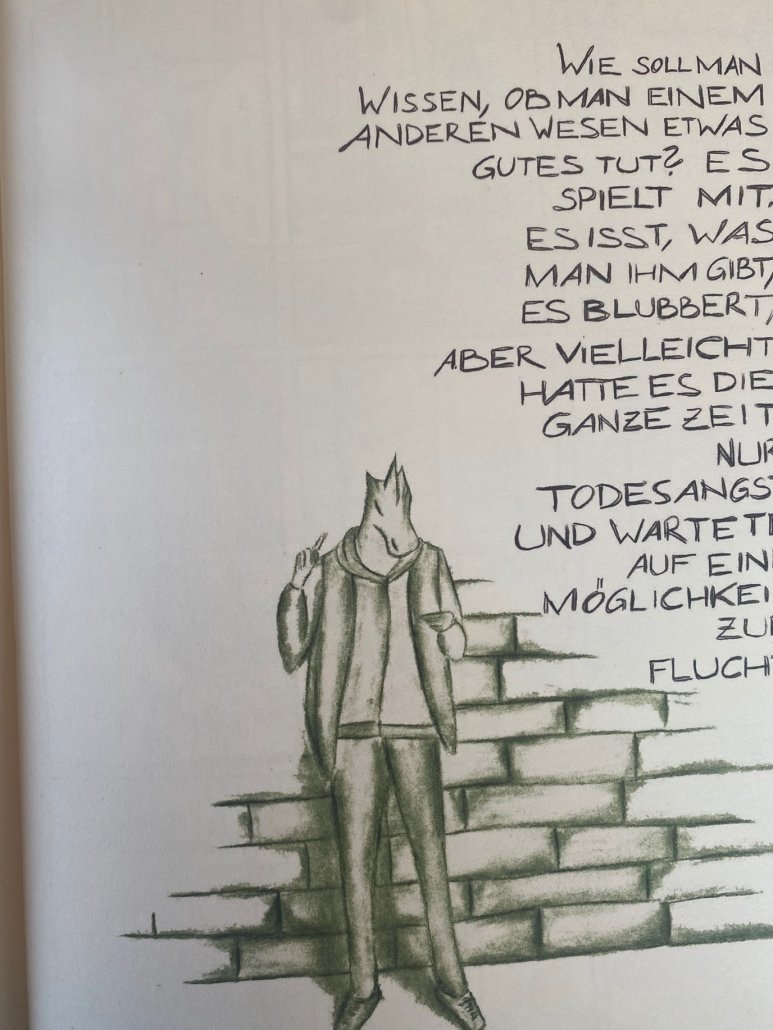 WIE SOLL MAN
WISSEN, OB MAN EINEM
ANDEREN WESEN ETWAS
GUTES TUT? ES
SPIELT MIT.
ES ISST, WAS
MAN IHM GIBT,
ES BLUBBERT,
ABER VIELLEICHT
HATTE ES DIE
GANZE ZEIT
NUR
TODESANGST
UND WARTETE
AUF EINE
MÖGLICHKEIT
ZUR
FLUCHT